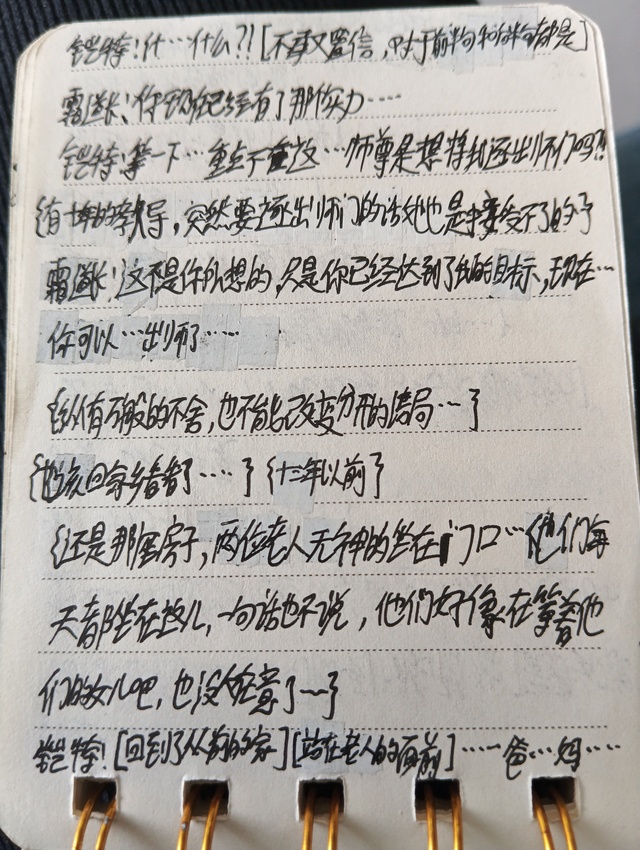 铠特:什…什么?![不敢置信,对于前半句和后半句都是]
霜道长:你现在已经有了那实力……
铠特:等一下…重点不重这…师尊是想将我逐出师门吗?!
{有十年的教导,突然要逐出师门的话她也是接受不了的}
霜道长:这不是你所想的,只是你已经达到了我的目标,现在…
你可以…出师了……
{纵有万般的不舍,也不能改变分开的结局…}
{她该回家乡看看了……} {十二年以前}
{还是那屋房子,两位老人无神的坐在门口…他们每
天都坐在这儿,一句话也不说,他们好像在等着他
们的女儿吧,也没人在意了~}
铠特:[回到了从前的家][站在老人的面前]……爸…妈……